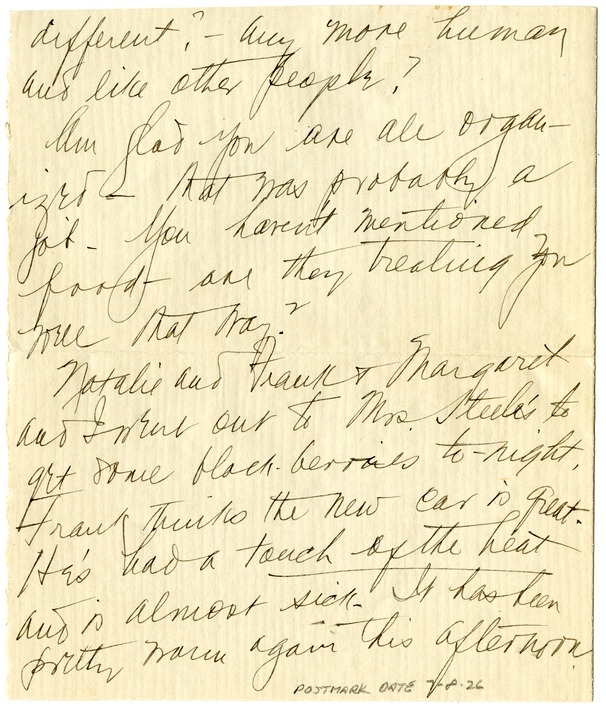 different? - Any more human
and like other people?
Am glad you are all organ-
ized - that was probably a
job - You haven't mentioned
food - are they treating you
well that way?
Natalie and Frank & Margaret
and I went out to Mrs. Steele's to
get some black-berries to-night.
Frank thinks the new car is great.
He's had a touch of the heat
and is almost sick. It has been
pretty warm again this afternoon
POSTMARK DATE 7-8-26